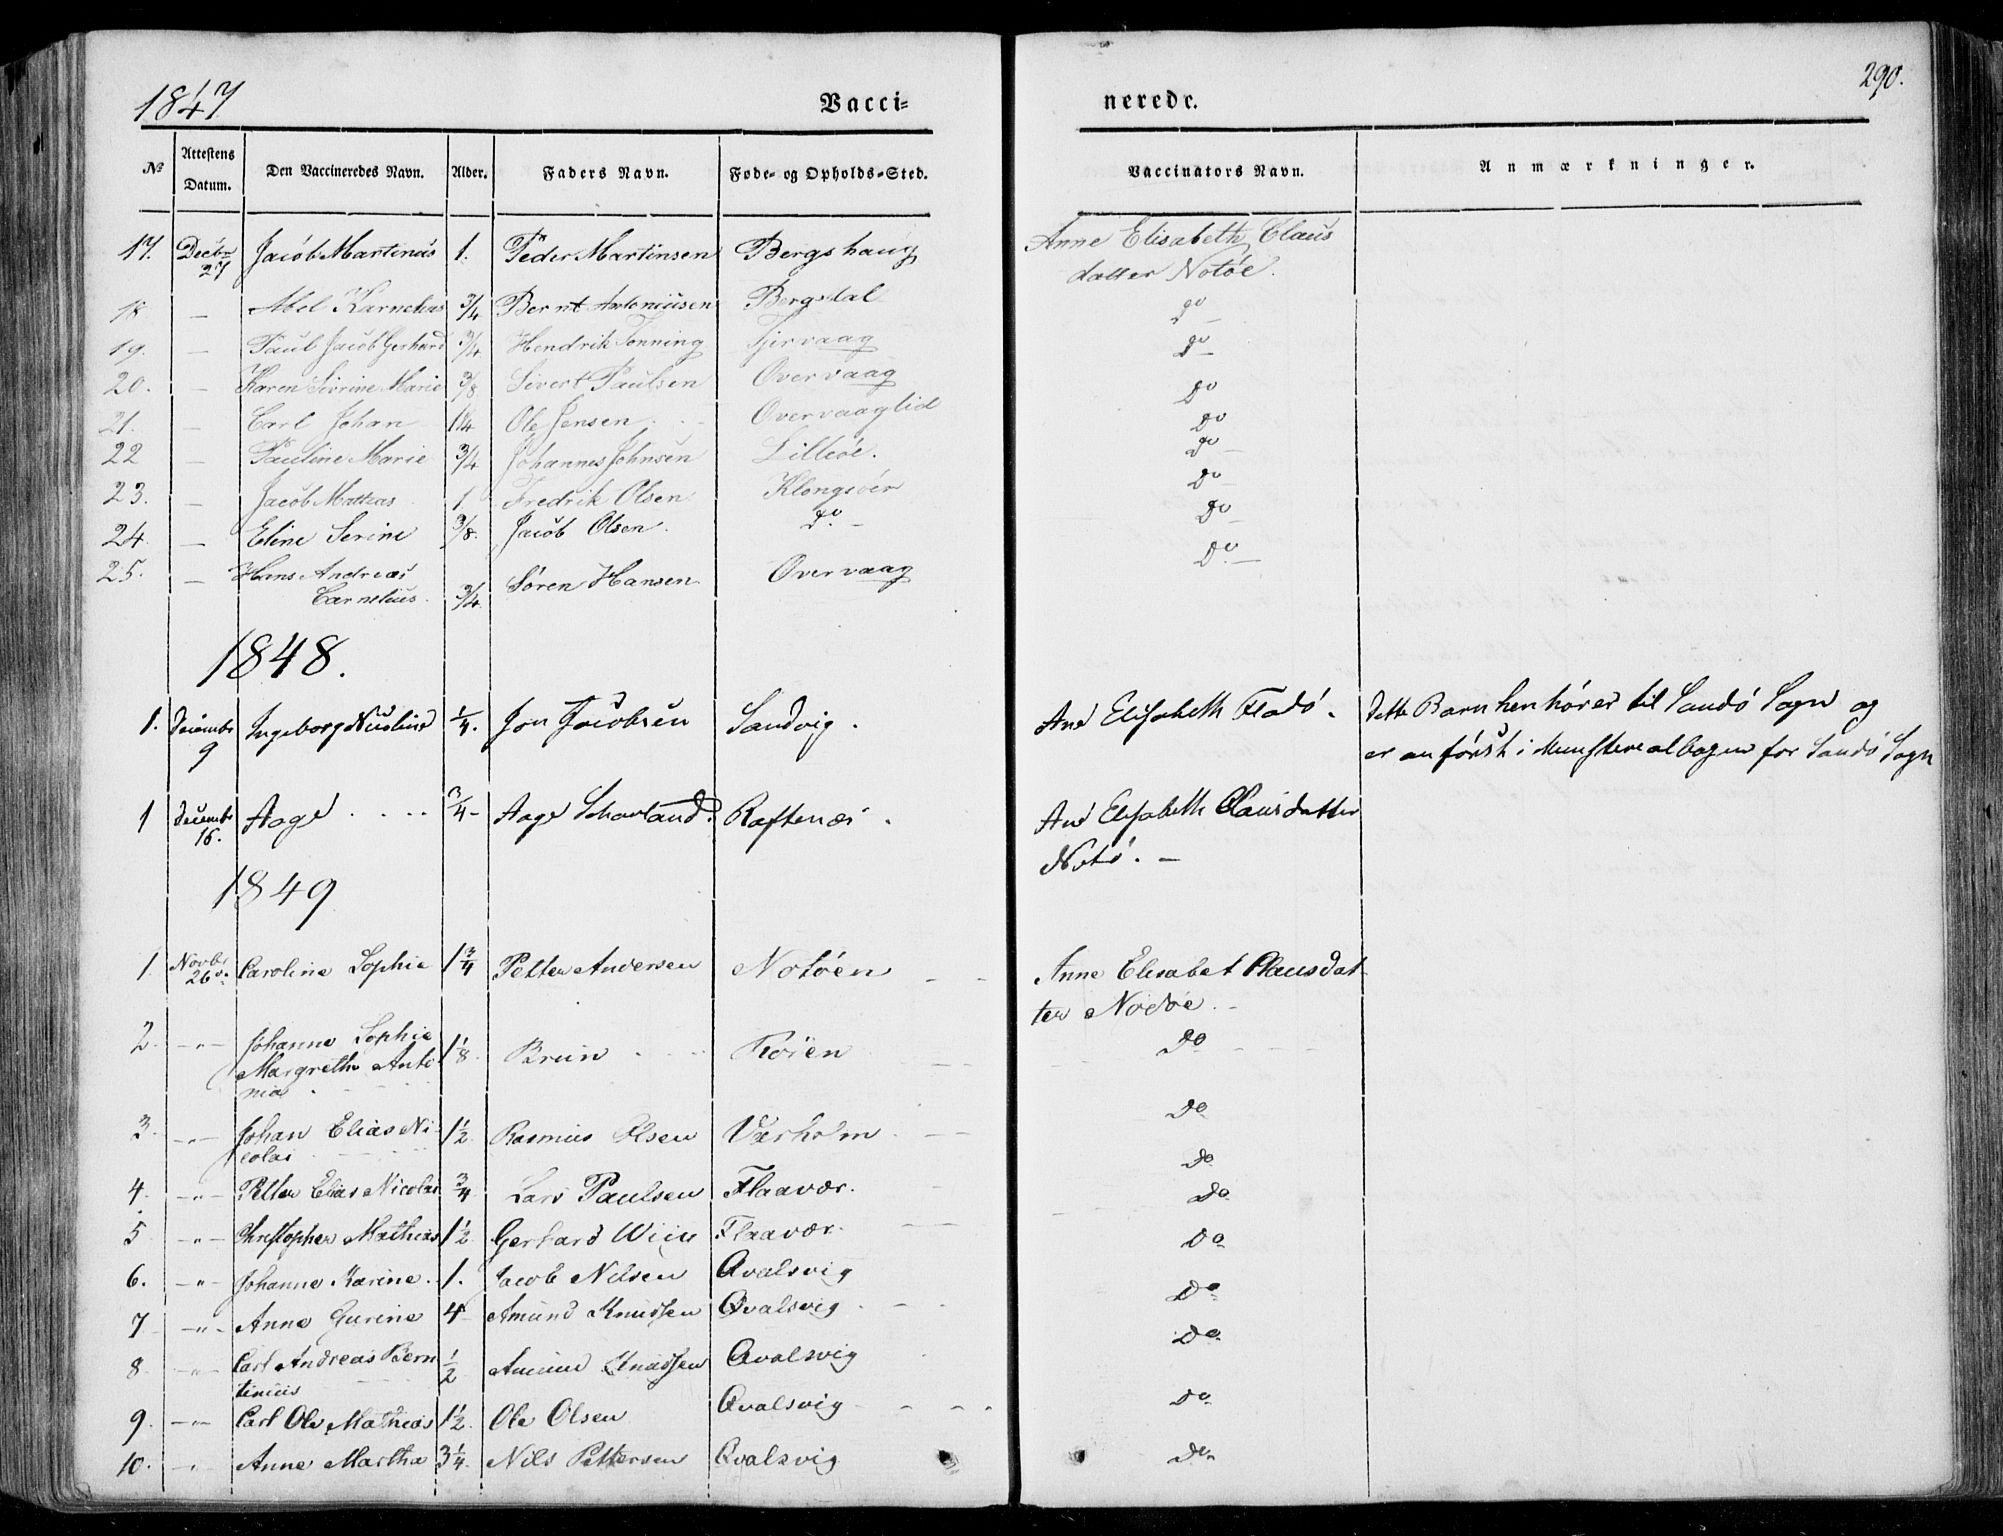 1847
Vacci=
nerede.
290.
No
Attestens Datum.
Den Vaccineredes Navn.
Alder.
Faders Navn.
Føde- og Opholds-Sted.
Vaccinators Navn.
Anmærkninger.
17. Decbr 27 Jacob Martinus 1. Peder Martinsen Bergshaug Anne Elisabeth Claus
datter Notöe.
18 — Abel Karnelius 3/4 Bernt Antoniusen Bergsdal do —
19. — Paul Jacob Gerhard 3/4 Hendrik Tonning Tjervaag Do —
20. — Karen Sivrine Marie 3/8 Sivert Paulsen Overvaag Do
21. — Carl Johan 1 1/4 Ole Jensen Overvaaglid Do
22 — Pauline Marie 3/4 Johannes Johnsen Lilleöe. Do —
23. — Jacob Mathias 1. Fredrik Olsen Klongsöer Do —
24. — Eline Serine 3/8. Jacob Olsen. Do. — Do —
25. — Hans Andreas
Carnelius. 3/4 Sören Hansen Overvaag Do. —
1848.
1. Decembr 9 Ingeborg Nicoline 1/4. Jon Jacobsen Sandvig. Ane Elisabeth Flodö. dette Barn henhörer til Sandö Sogn og
er anförst i Ministerealbogen for Sandö Sogn
1 Decembr 16. Aage . . . . 3/4 - Aage Schavland. Raftenæs. Ane Elisabeth Clausdatter
Notö. —
1849
1. Novbr 26 Caroline Sophie 1 3/4 Petter Andersen Notöen — — Anne Elisabet Clausdat-
ter Nodöe. —
2. — " — Johanne Sophie
Margrethe Anto
nia 1 1/8 Bruun Do
3. — " — Johan Elias Ni-
colai 1 1/2 Rasmus Olsen Værholm — Do
4. — " — Petter Elias Nicolai 3/4 Lars Paulsen Flaavær. Do
5 — " — Christopher Mathias 1 1/2 Gerhard Wiig Flaavær. Do
6. — " — Johanne Karine. 1. Jacob Nilsen Qvalsvig Do
7 — " — Anne Gurine 4 Amund Knudsen Qvalsvig Do
8. — " — Carl Andreas Bern
tinius 1/2 Amund Knudsen Qvalsvig Do
9. — " — Carl Ole Mathias 1 1/2. Ole Olsen Qvalsvig Do
10. " Anne Martha 3 1/4. Nils Pettersen Qvalsvig Do